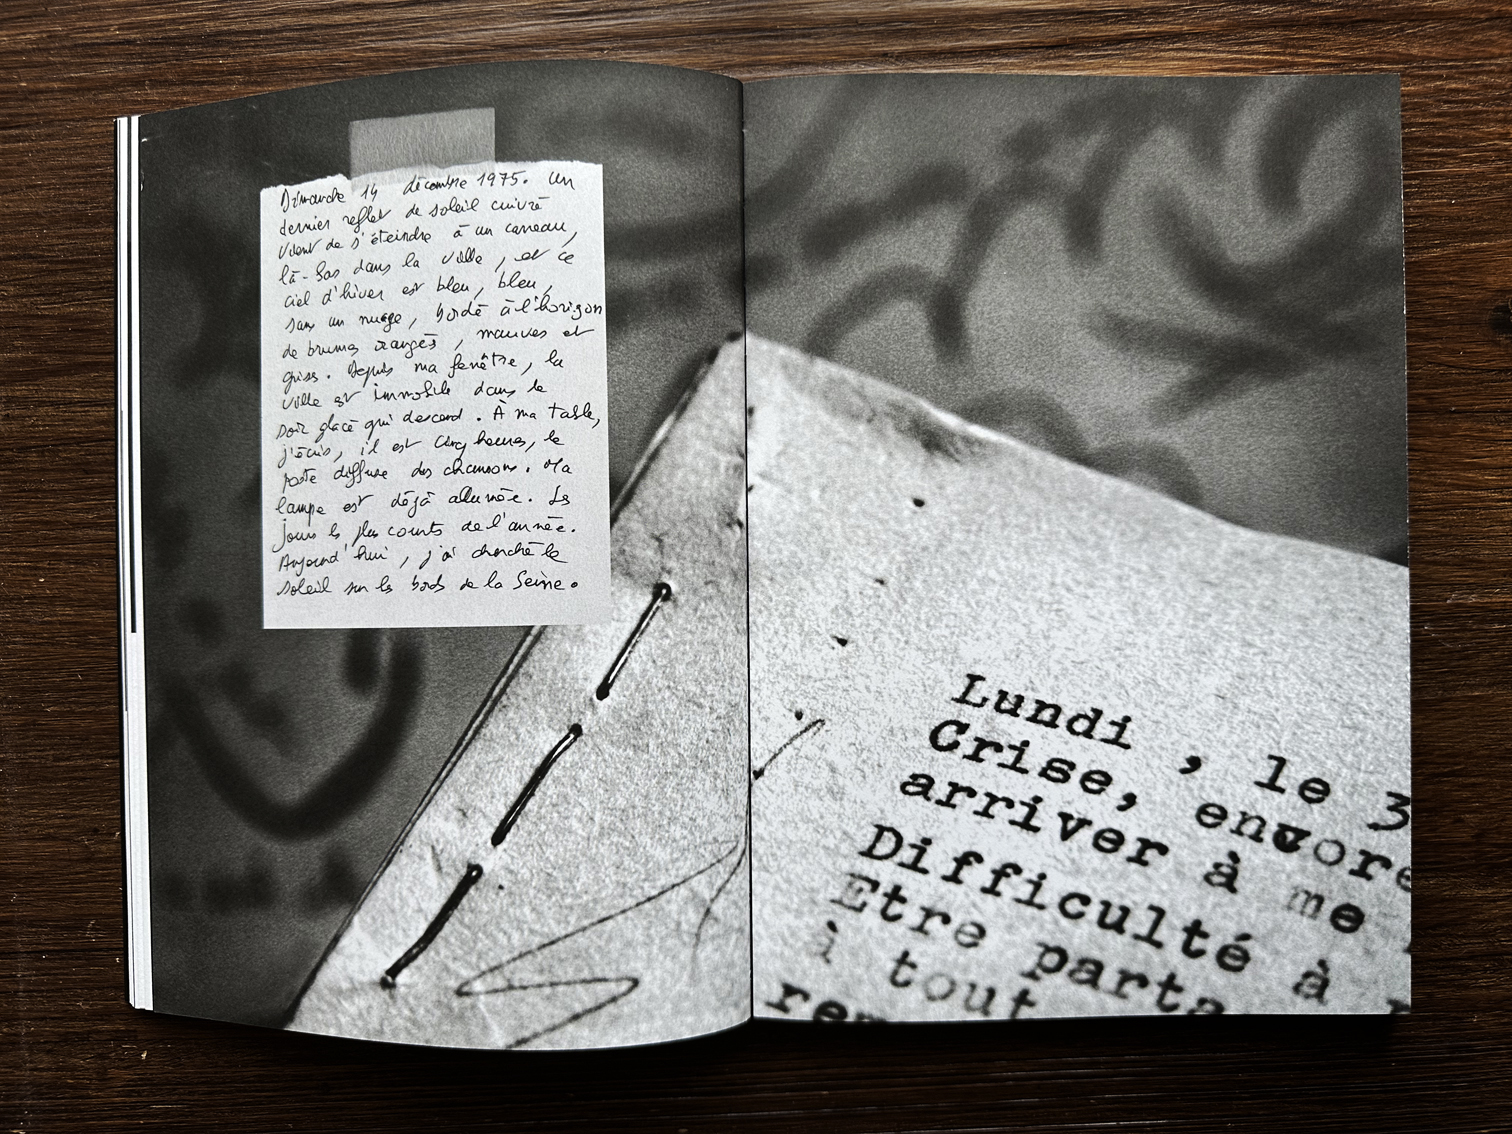 Dimanche 14 décembre 1975. Un
dernier reflet de soleil cuivré
vient de s'éteindre à un carreau,
là-bas dans la ville, et ce
ciel d'hiver est bleu, bleu,
sans un nuage, bordé à l'horizon
de brumes orangés, mauves et
grises. Depuis ma fenêtre, la
ville est immobile dans le
soir glacé qui descend. À ma table,
j'écris, il est cinq heures, le
poste diffuse des chansons. Ma
lampe est déjà allumée. Les
jours les plus courts de l'année.
Aujourd'hui, j'ai cherché le
soleil sur les bords de la Seine.
Lundi , le 3
Crise, encore
arriver à me
Difficulté à
Etre parta
i tout
re